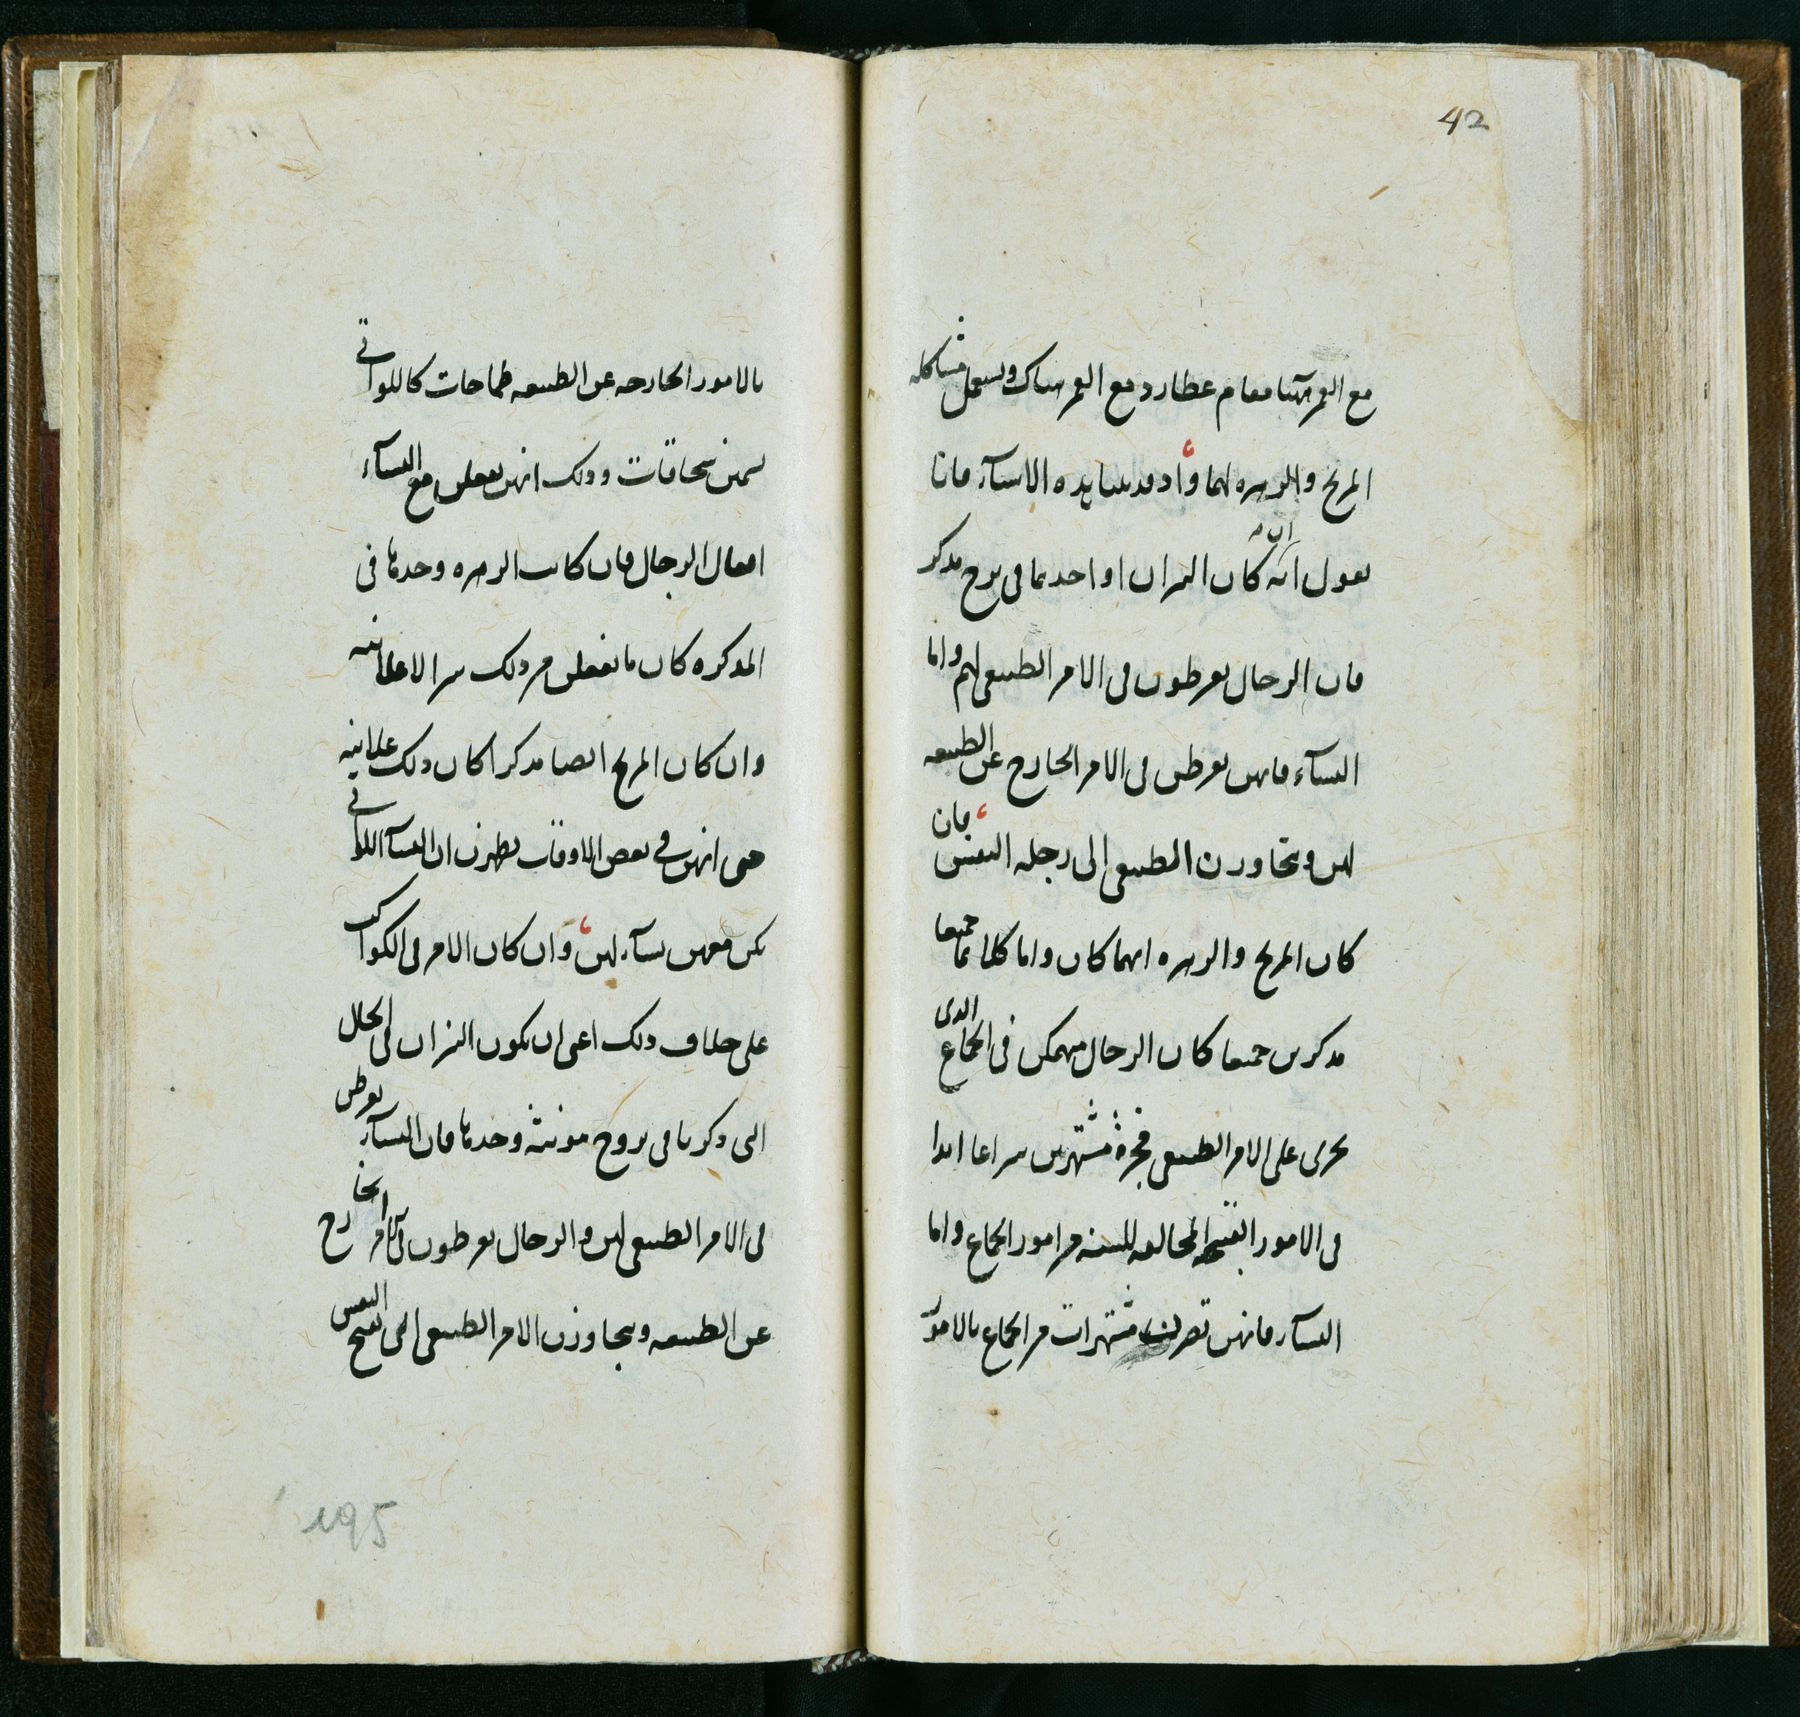 42
مع القمر ههنا مقام عطارد مع القمر هناك ويستعمل مشاكله
المريخ والزهره لهما واذ قد بينا هذه الاشياء فانا
نقول انه ان كان النيران او احدهما فى برج مذكر
فان الرجال يفرطون فى الامر الطبيعى لهم واما
النساء فانهن يفرطن فى الامر الخارج عن الطبيعه
لهن وتجاوزن الطبيعى الى رجله النفس فان
كان المريخ والزهره ايهما كان واما كلاهما جميعا
مذكرين جميعا كان الرجال منهمكين فى الجماع الذى
يجرى على الامر الطبيعى فجرة مشتهرين سراعا ابدا
فى الامور القبيحه المخالفه للسنه من امور الجماع واما
النساء فانهن تصرن مشتهرات من الجماع بالامور
بالامور الخارجه عن الطبيعه طماحات كاللواتى
يسمين سحاقات وذلك انهن يفعلن مع النساء
افعال الرجال فان كانت الزهره وحدها فى
المذكره كان ما يفعلن من ذلك سرا لا علانيه
وان كان المريخ ايضا مذكرا كان ذلك علانيه
حتى انهن فى بعض الاوقات يظهرن ان النساء اللواتى
يكن معهن نساء لهن وان كان الامر فى الكواكب
على خلاف ذلك اعنى ان يكون النيران فى الحال
التى ذكرنا فى بروج مونثه وحدها فان النساء يفرطن
فى الامر الطبيعى لهن والرجال يفرطون فى الامر الخارج
عن الطبيعه ويجاوزن الامر الطبيعى الى النفس
195